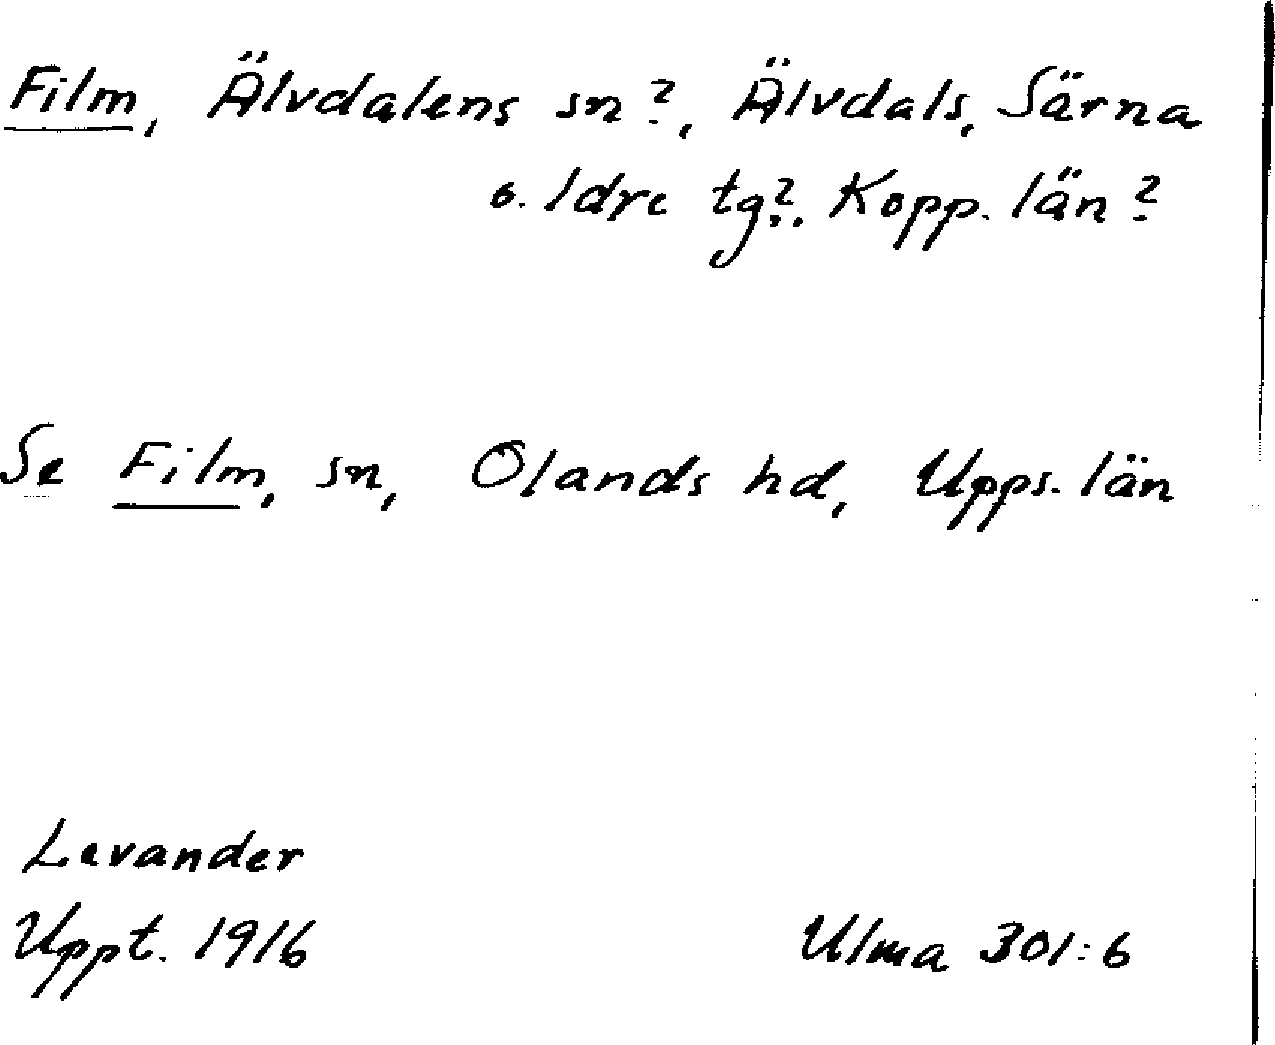 Film, Älvdalens sn?, Älvdals, Särna
o. Idre tg?. Kopp. län?
Se Film, sn, Olands hd, Upps. län
Levander
Uppt. 1916
Ulma 301:6